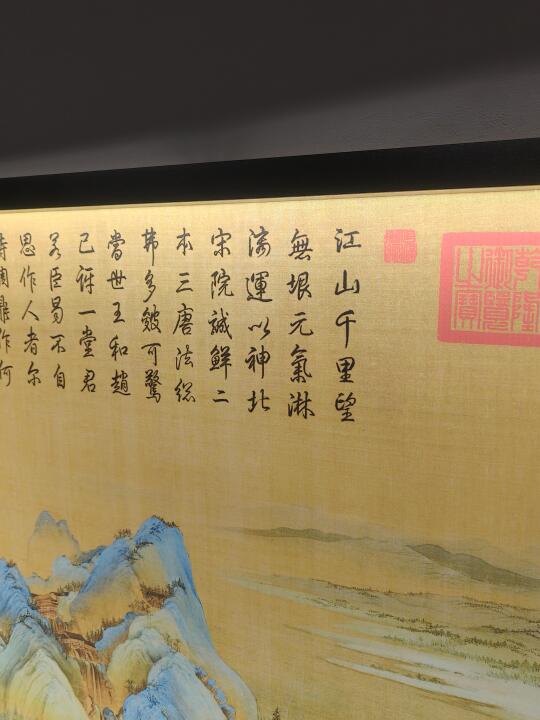 乾隆
御覽
之寶
江山千里望
無垠元氣淋
漓運以神北
宋院誠鮮二
本三唐法総
弗多皴可驚
當世王和趙
已訝一堂君
若臣曷不自
思作人者尔
時調鼎作何